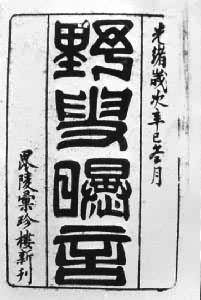 光緒歲次辛巳壹月
野叟曝言
毘陵彙珍樓新刊